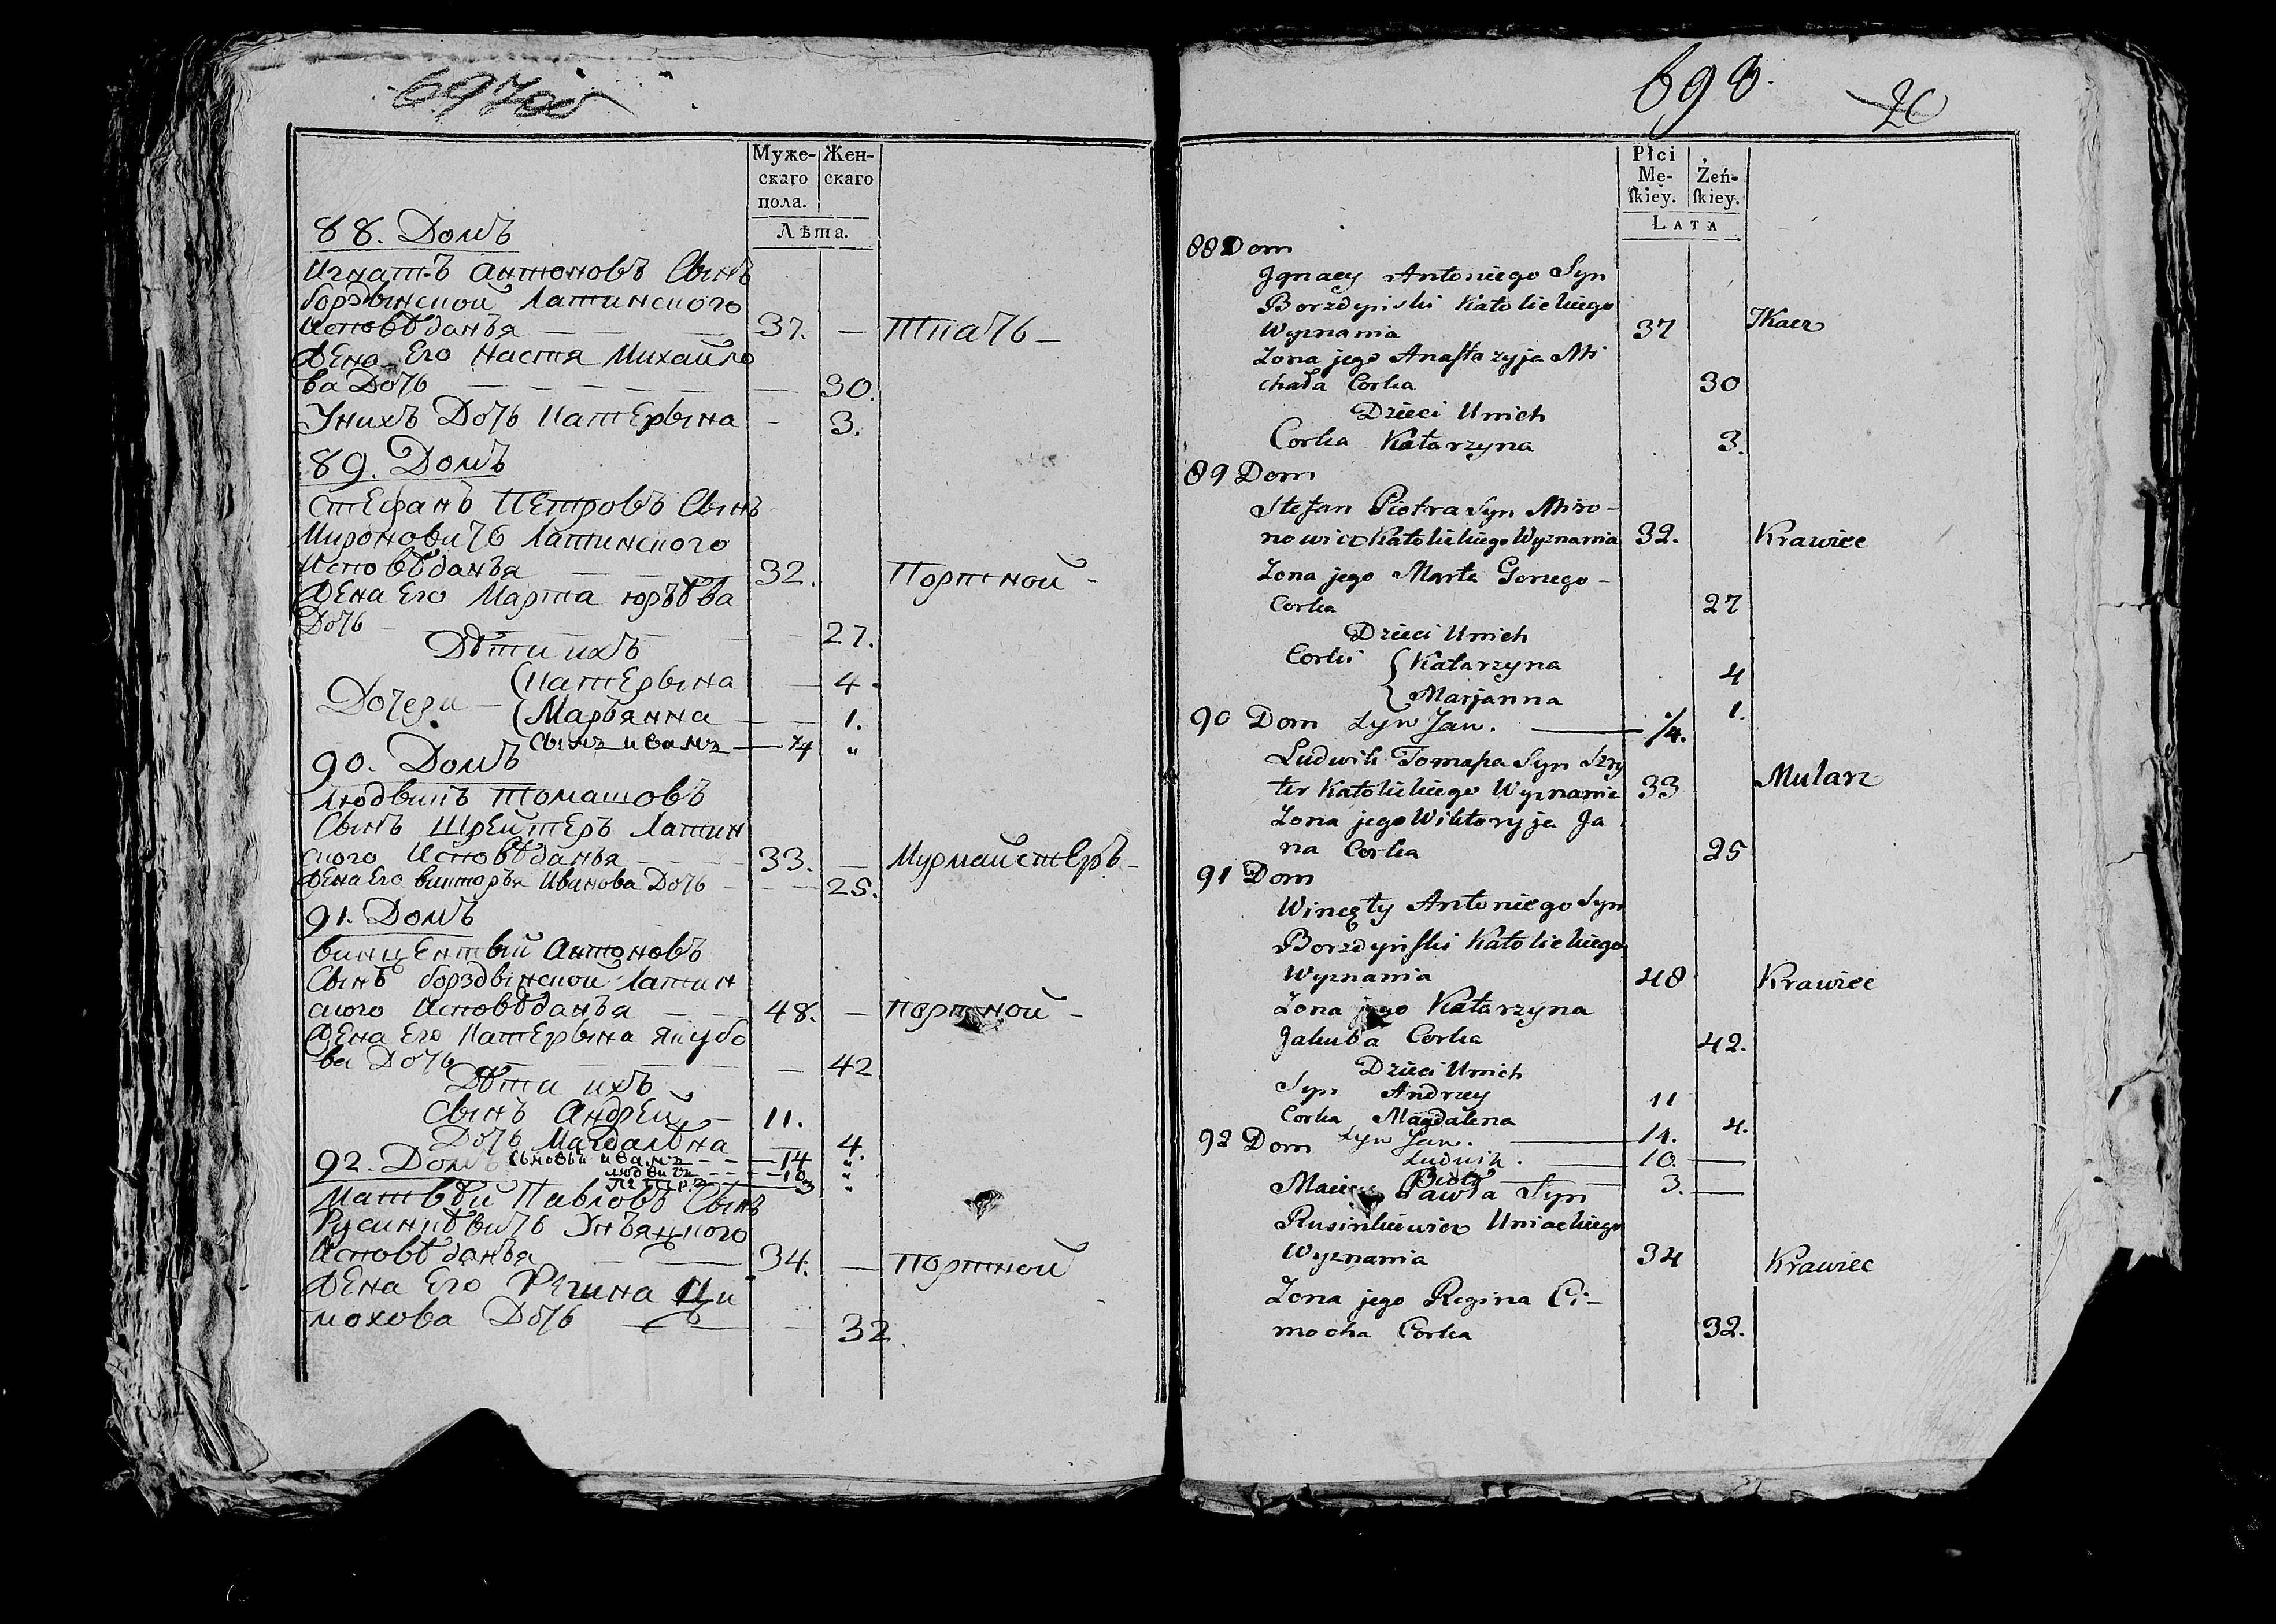 697об
Муже-
скаго
пола.
Жен-
скаго
Лѣта.
88. Домъ
Игнатъ Антоновъ Сынъ
борздвинской Латинского
Исповѣданъя — — — 37. — Ткачь —
Жена Его Настя Михайло
ва Дочь — — — — — 30.
Унихъ Дочь Катерына - 3.
89. Домъ
Стефанъ Петровъ Сынъ
Мироновичь Латинского
Исповѣданъя — — — 32. Портной -
Жена Его Марта юръѣва
Дочь — — — — 27.
Дѣти ихъ
Дочери — (Катерына — 4.
(Маръянна — — 1.
Сынъ иванъ — 1/4 "
90. Домъ
Людвикъ Томашовъ
Сынъ Шрейтеръ Латин
ского Исповѣданья - - - 33. — Мурмайстеръ -
Жена Его викторъя Иванова Дочь - - - 25.
91. Домъ
винцентый Антоновъ
Сынъ борздвинской Латин
ского Исповѣданъя — — 48. — портной -
Жена Его Катерына якубо
ва Дочь — — — — — 42
Дѣти ихъ
Сынъ Андрей — 11.
Дочь Магдалѣна 4.
92. Домъ Сыновьи иванъ - - — 14 "
людвигъ - - - - 10 "
Петръ — — 3 "
Матвѣй Павловъ Сынъ
Русинкѣвичь Унъяцкого
Исповѣданъя — — 34. — Портной
Жена Его Регина Ци
мохова Дочь — — 32.
698.
20
Płci
Mę-
ſkiey.
Żeń-
ſkiey.
LATA
88 Dom
Jgnacy Antoniego Syn
Borzdyński Katolickiego
Wyznania 37 Tkacz
Zona jego Anaſtazyja Mi
chała Corka 30
Dzieci Unich
Corka Katarzyna 3.
89 Dom
Stefan Piotra Syn Miro-
nowicz Katolickiego Wyznania 32. Krawiec
Zona jego Marta Gorzego-
Corka 27
Dzieci Unich
Corki { Katarzyna 4
Marjanna 1.
90 Dom Syn Jan. — 1/4.
Ludwik Tomaſza Syn Szry
ter Katolickiego Wyznania 33 Mularz
Zona jego Wiktoryja Ja
na Corka 25
91 Dom
Wincęty Antoniego Syn
Borzdyńſki Katolickiego
Wyznania 48 Krawiec
Zona jego Katarzyna
Jakuba Corka 42.
Dzieci Unich
Syn Andrzey 11
Corka Magdalena 4.
92 Dom Syn Jan. — 14.
Ludwik. — 10. —
Piotr — 3. —
Maciey Pawła Syn
Rusinkiewicz Uniackiego
Wyznania 34 Krawiec
Zona jego Regina Ci-
mocha Corka 32.